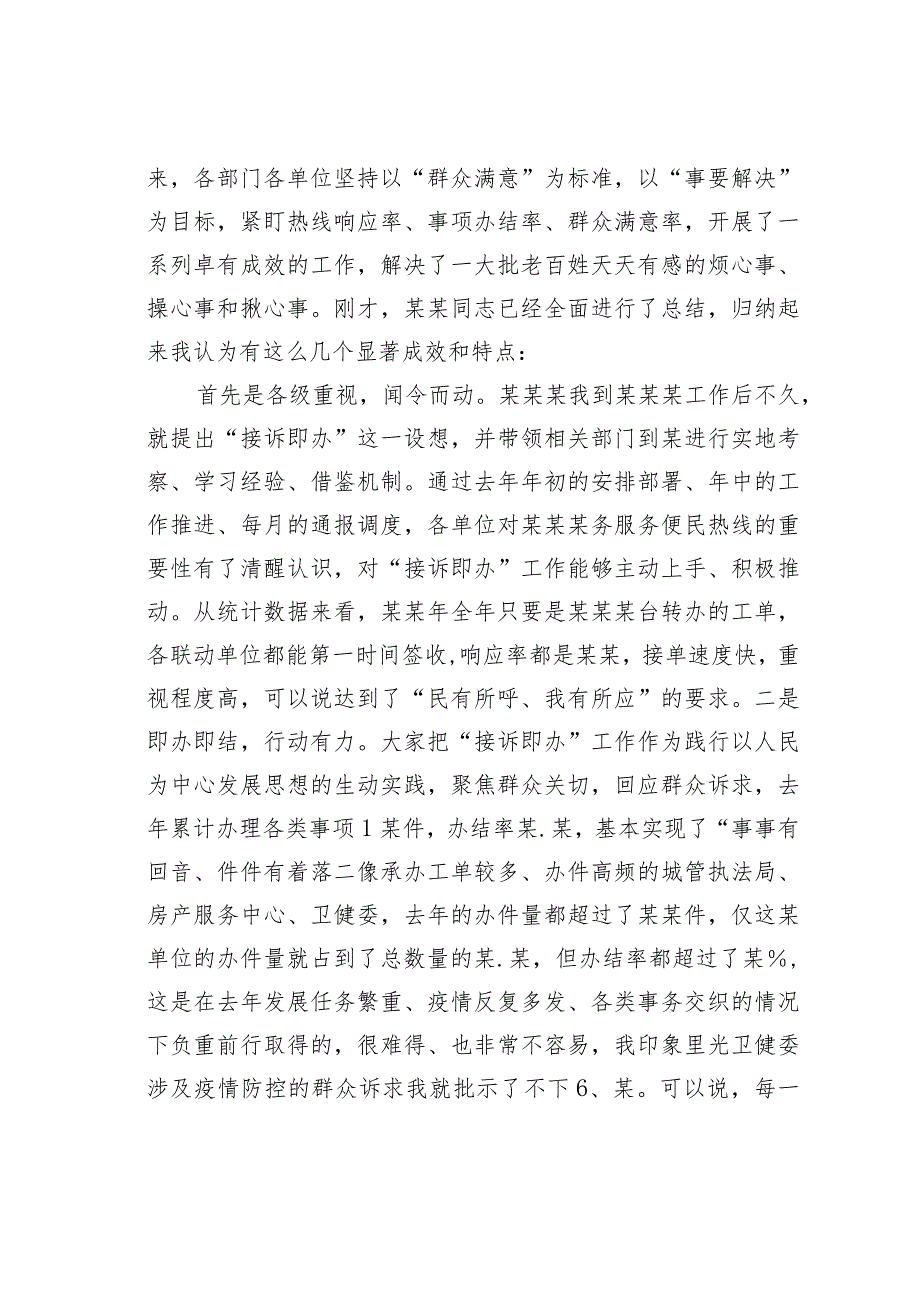 来，各部门各单位坚持以“群众满意”为标准，以“事要解决”
为目标，紧盯热线响应率、事项办结率、群众满意率，开展了一
系列卓有成效的工作，解决了一大批老百姓天天有感的烦心事、
操心事和揪心事。刚才，某某同志已经全面进行了总结，归纳起
来我认为有这么几个显著成效和特点：
首先是各级重视，闻令而动。某某某我到某某某工作后不久，
就提出“接诉即办”这一设想，并带领相关部门到某进行实地考
察、学习经验、借鉴机制。通过去年年初的安排部署、年中的工
作推进、每月的通报调度，各单位对某某某务服务便民热线的重
要性有了清醒认识，对“接诉即办”工作能够主动上手、积极推
动。从统计数据来看，某某年全年只要是某某某台转办的工单，
各联动单位都能第一时间签收,响应率都是某某，接单速度快，重
视程度高，可以说达到了“民有所呼、我有所应”的要求。二是
即办即结，行动有力。大家把“接诉即办”工作作为践行以人民
为中心发展思想的生动实践，聚焦群众关切，回应群众诉求，去
年累计办理各类事项1某件，办结率某.某，基本实现了“事事有
回音、件件有着落二像承办工单较多、办件高频的城管执法局、
房产服务中心、卫健委，去年的办件量都超过了某某件，仅这某
单位的办件量就占到了总数量的某.某，但办结率都超过了某%，
这是在去年发展任务繁重、疫情反复多发、各类事务交织的情况
下负重前行取得的，很难得、也非常不容易，我印象里光卫健委
涉及疫情防控的群众诉求我就批示了不下6、某。可以说，每一